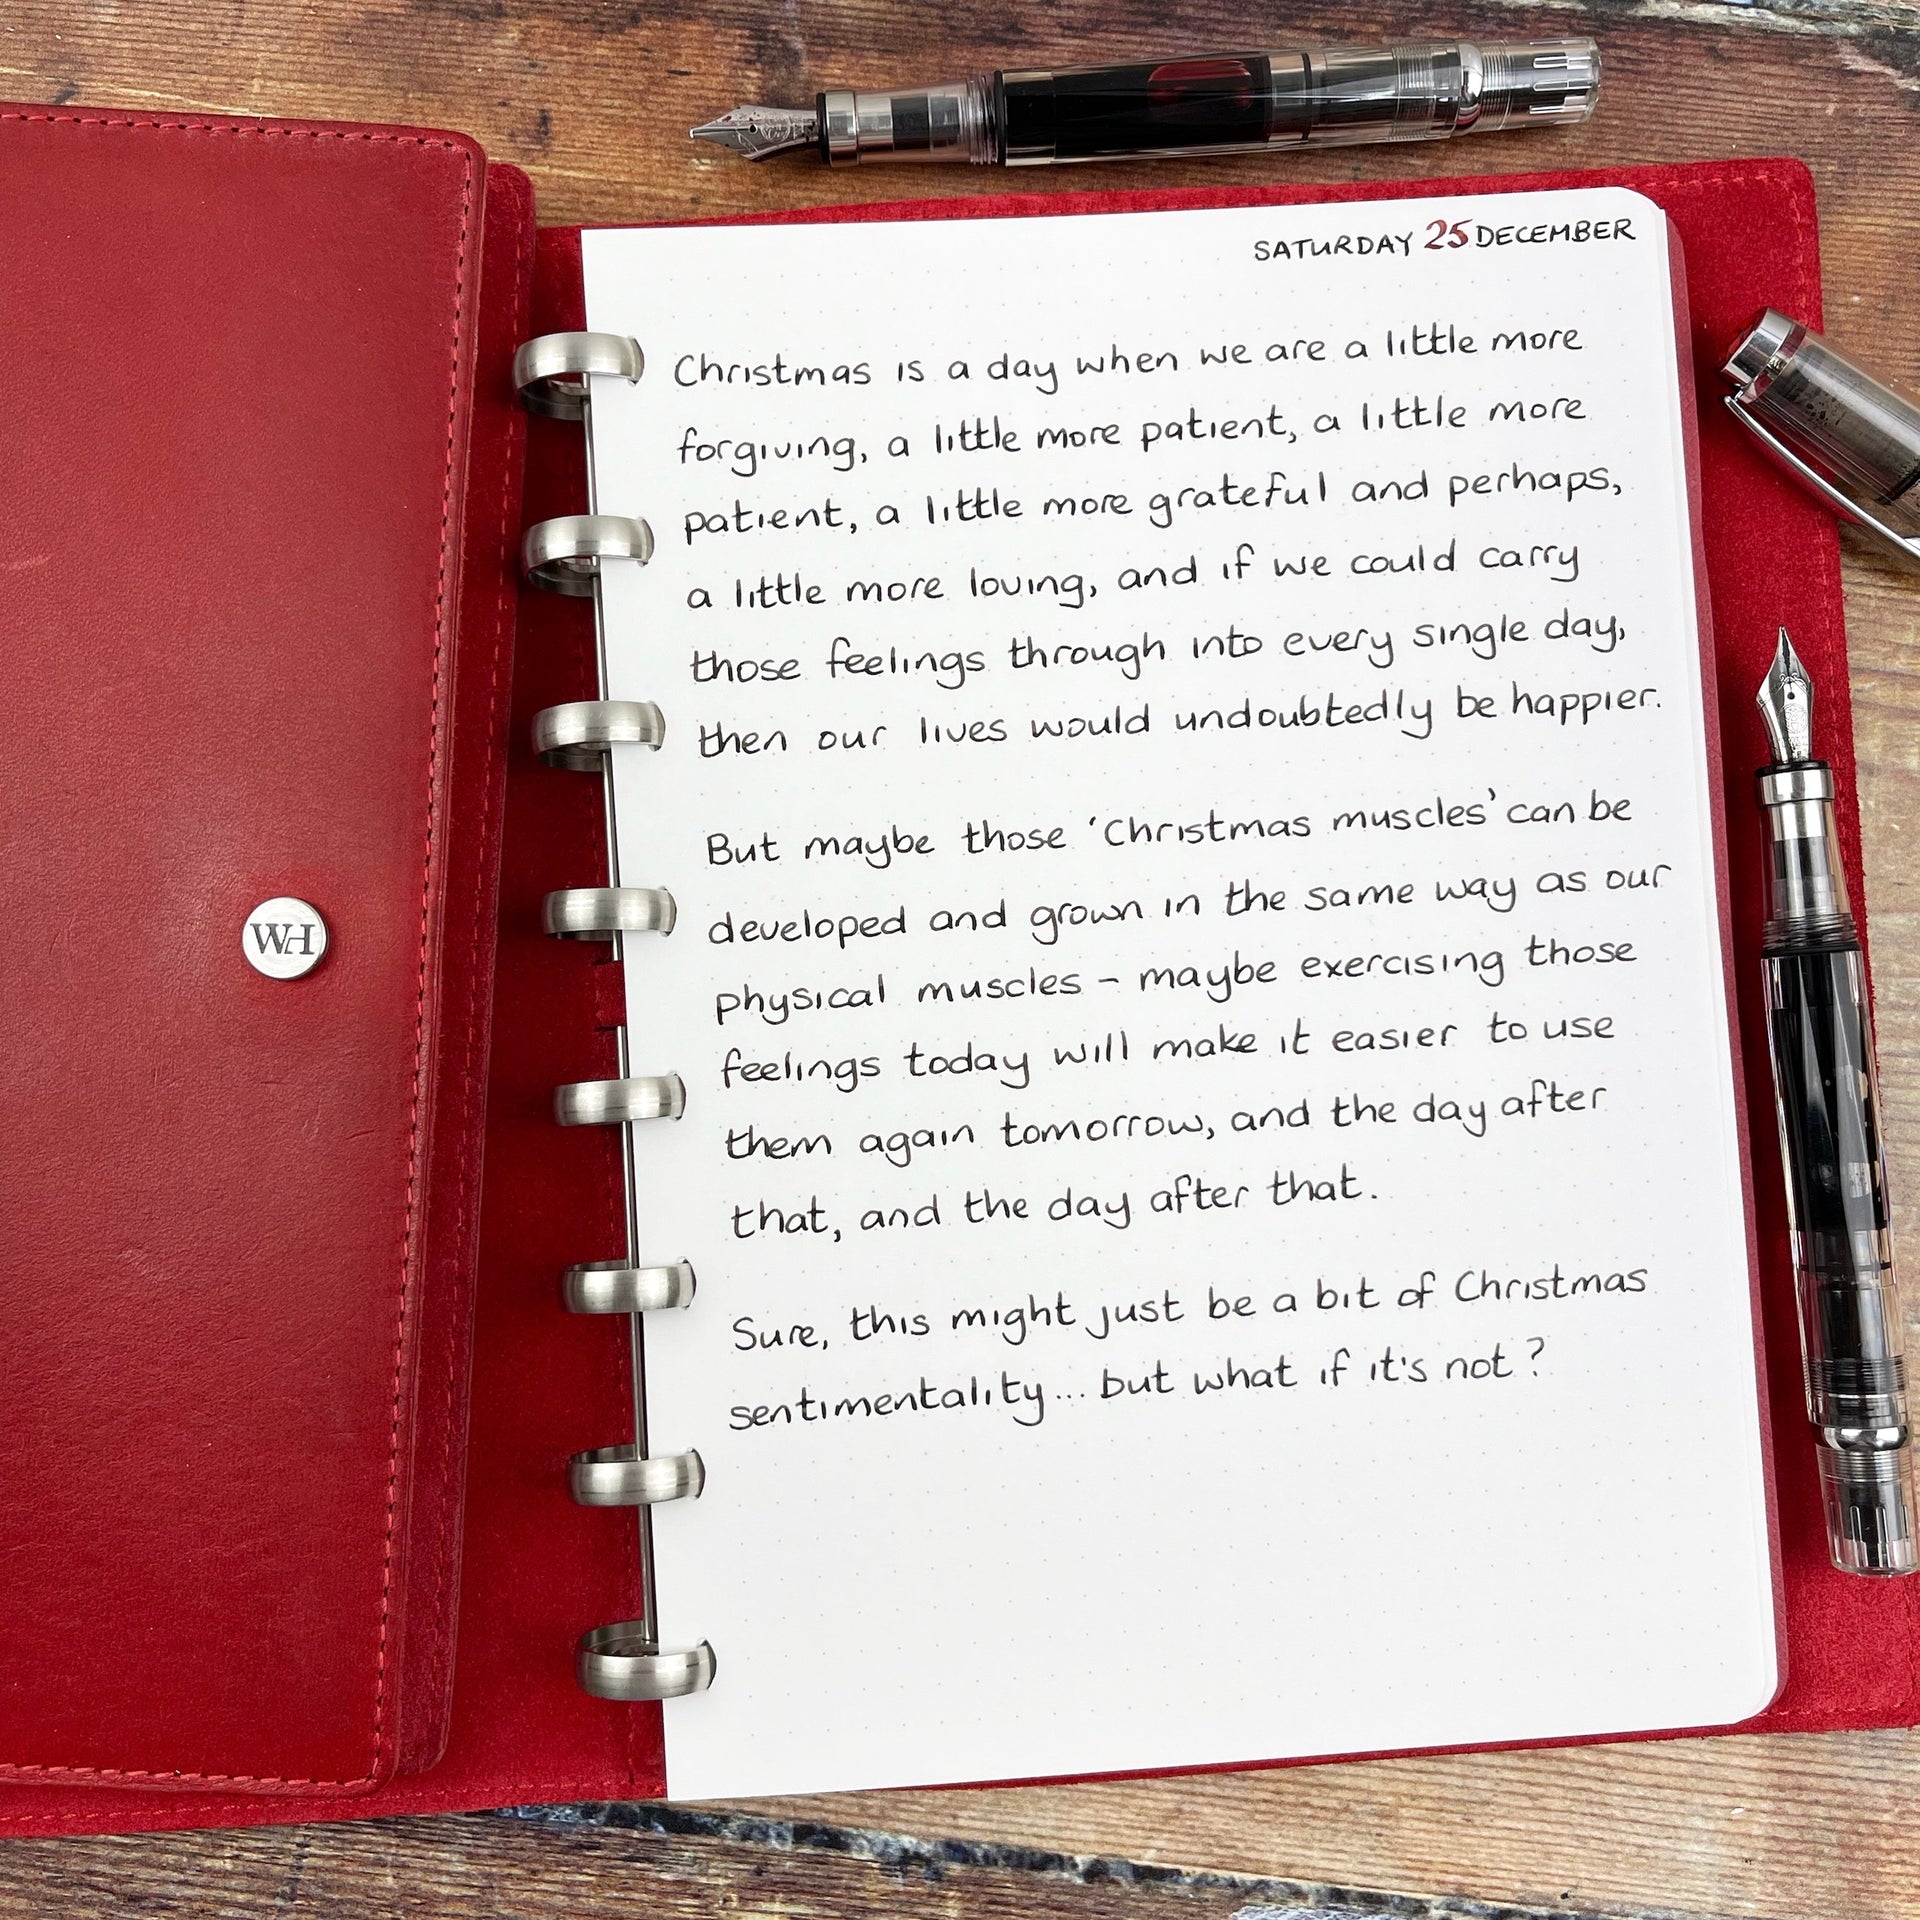 WH
SATURDAY 25 DECEMBER
Christmas is a day when we are a little more
forgiving, a little more patient, a little more
patient, a little more grateful and perhaps,
a little more loving, and if we could carry
those feelings through into every single day,
then our lives would undoubtedly be happier.
But maybe those 'Christmas muscles' can be
developed and grown in the same way as our
physical muscles – maybe exercising those
feelings today will make it easier to use
them again tomorrow, and the day after
that, and the day after that.
Sure, this might just be a bit of Christmas
sentimentality... but what if it's not?